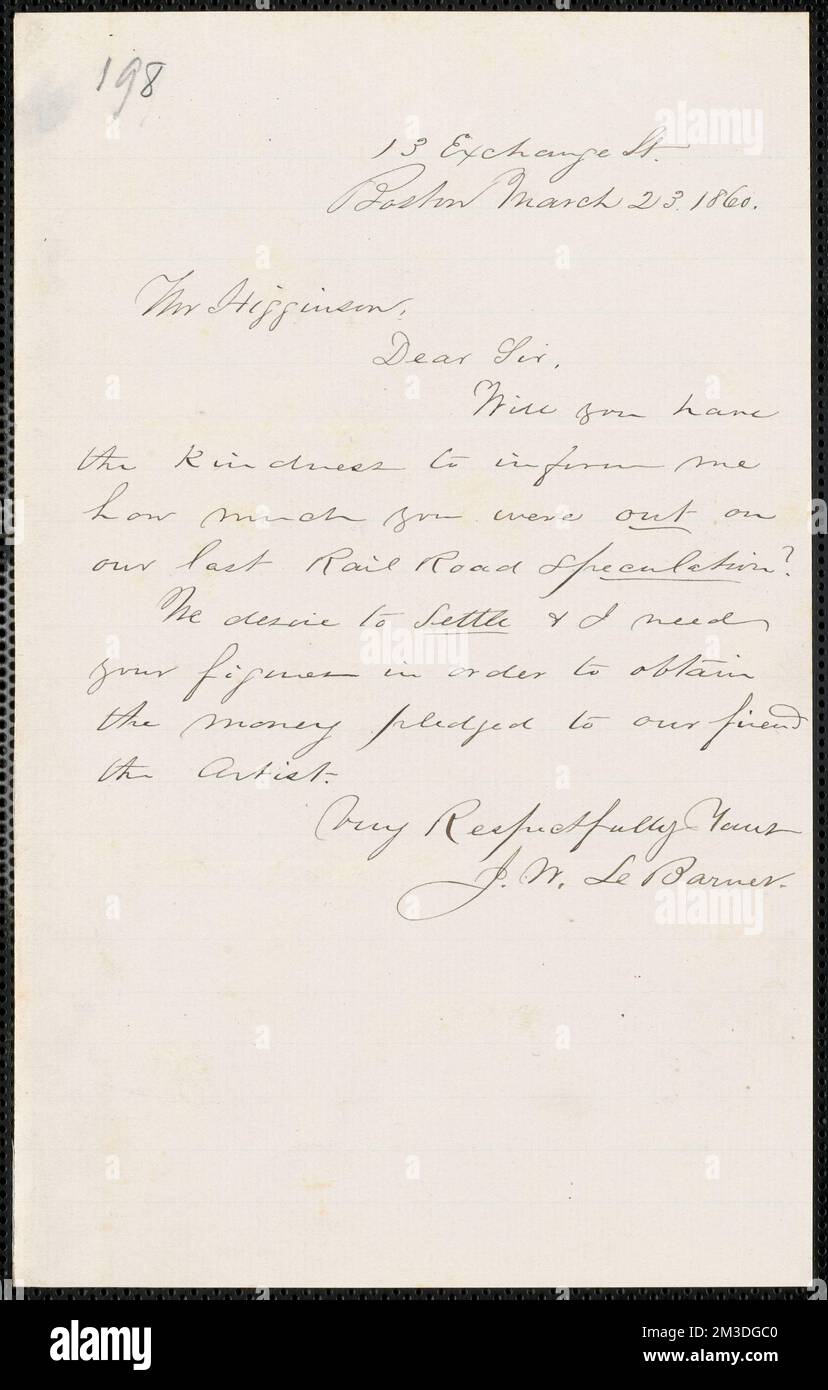 198
13 Exchange St.
Boston March 23. 1860.
Mr Higginson,
Dear Sir,
Will you have
the kindness to inform me
how much you were out on
our last Rail Road speculation?
We desire to settle & I need
your figures in order to obtain
the money pledged to our friend
the Artist.
Very Respectfully Yours
J. W. Le Barnes.
alamy
Image ID: 2M3DGC0
www.alamy.com